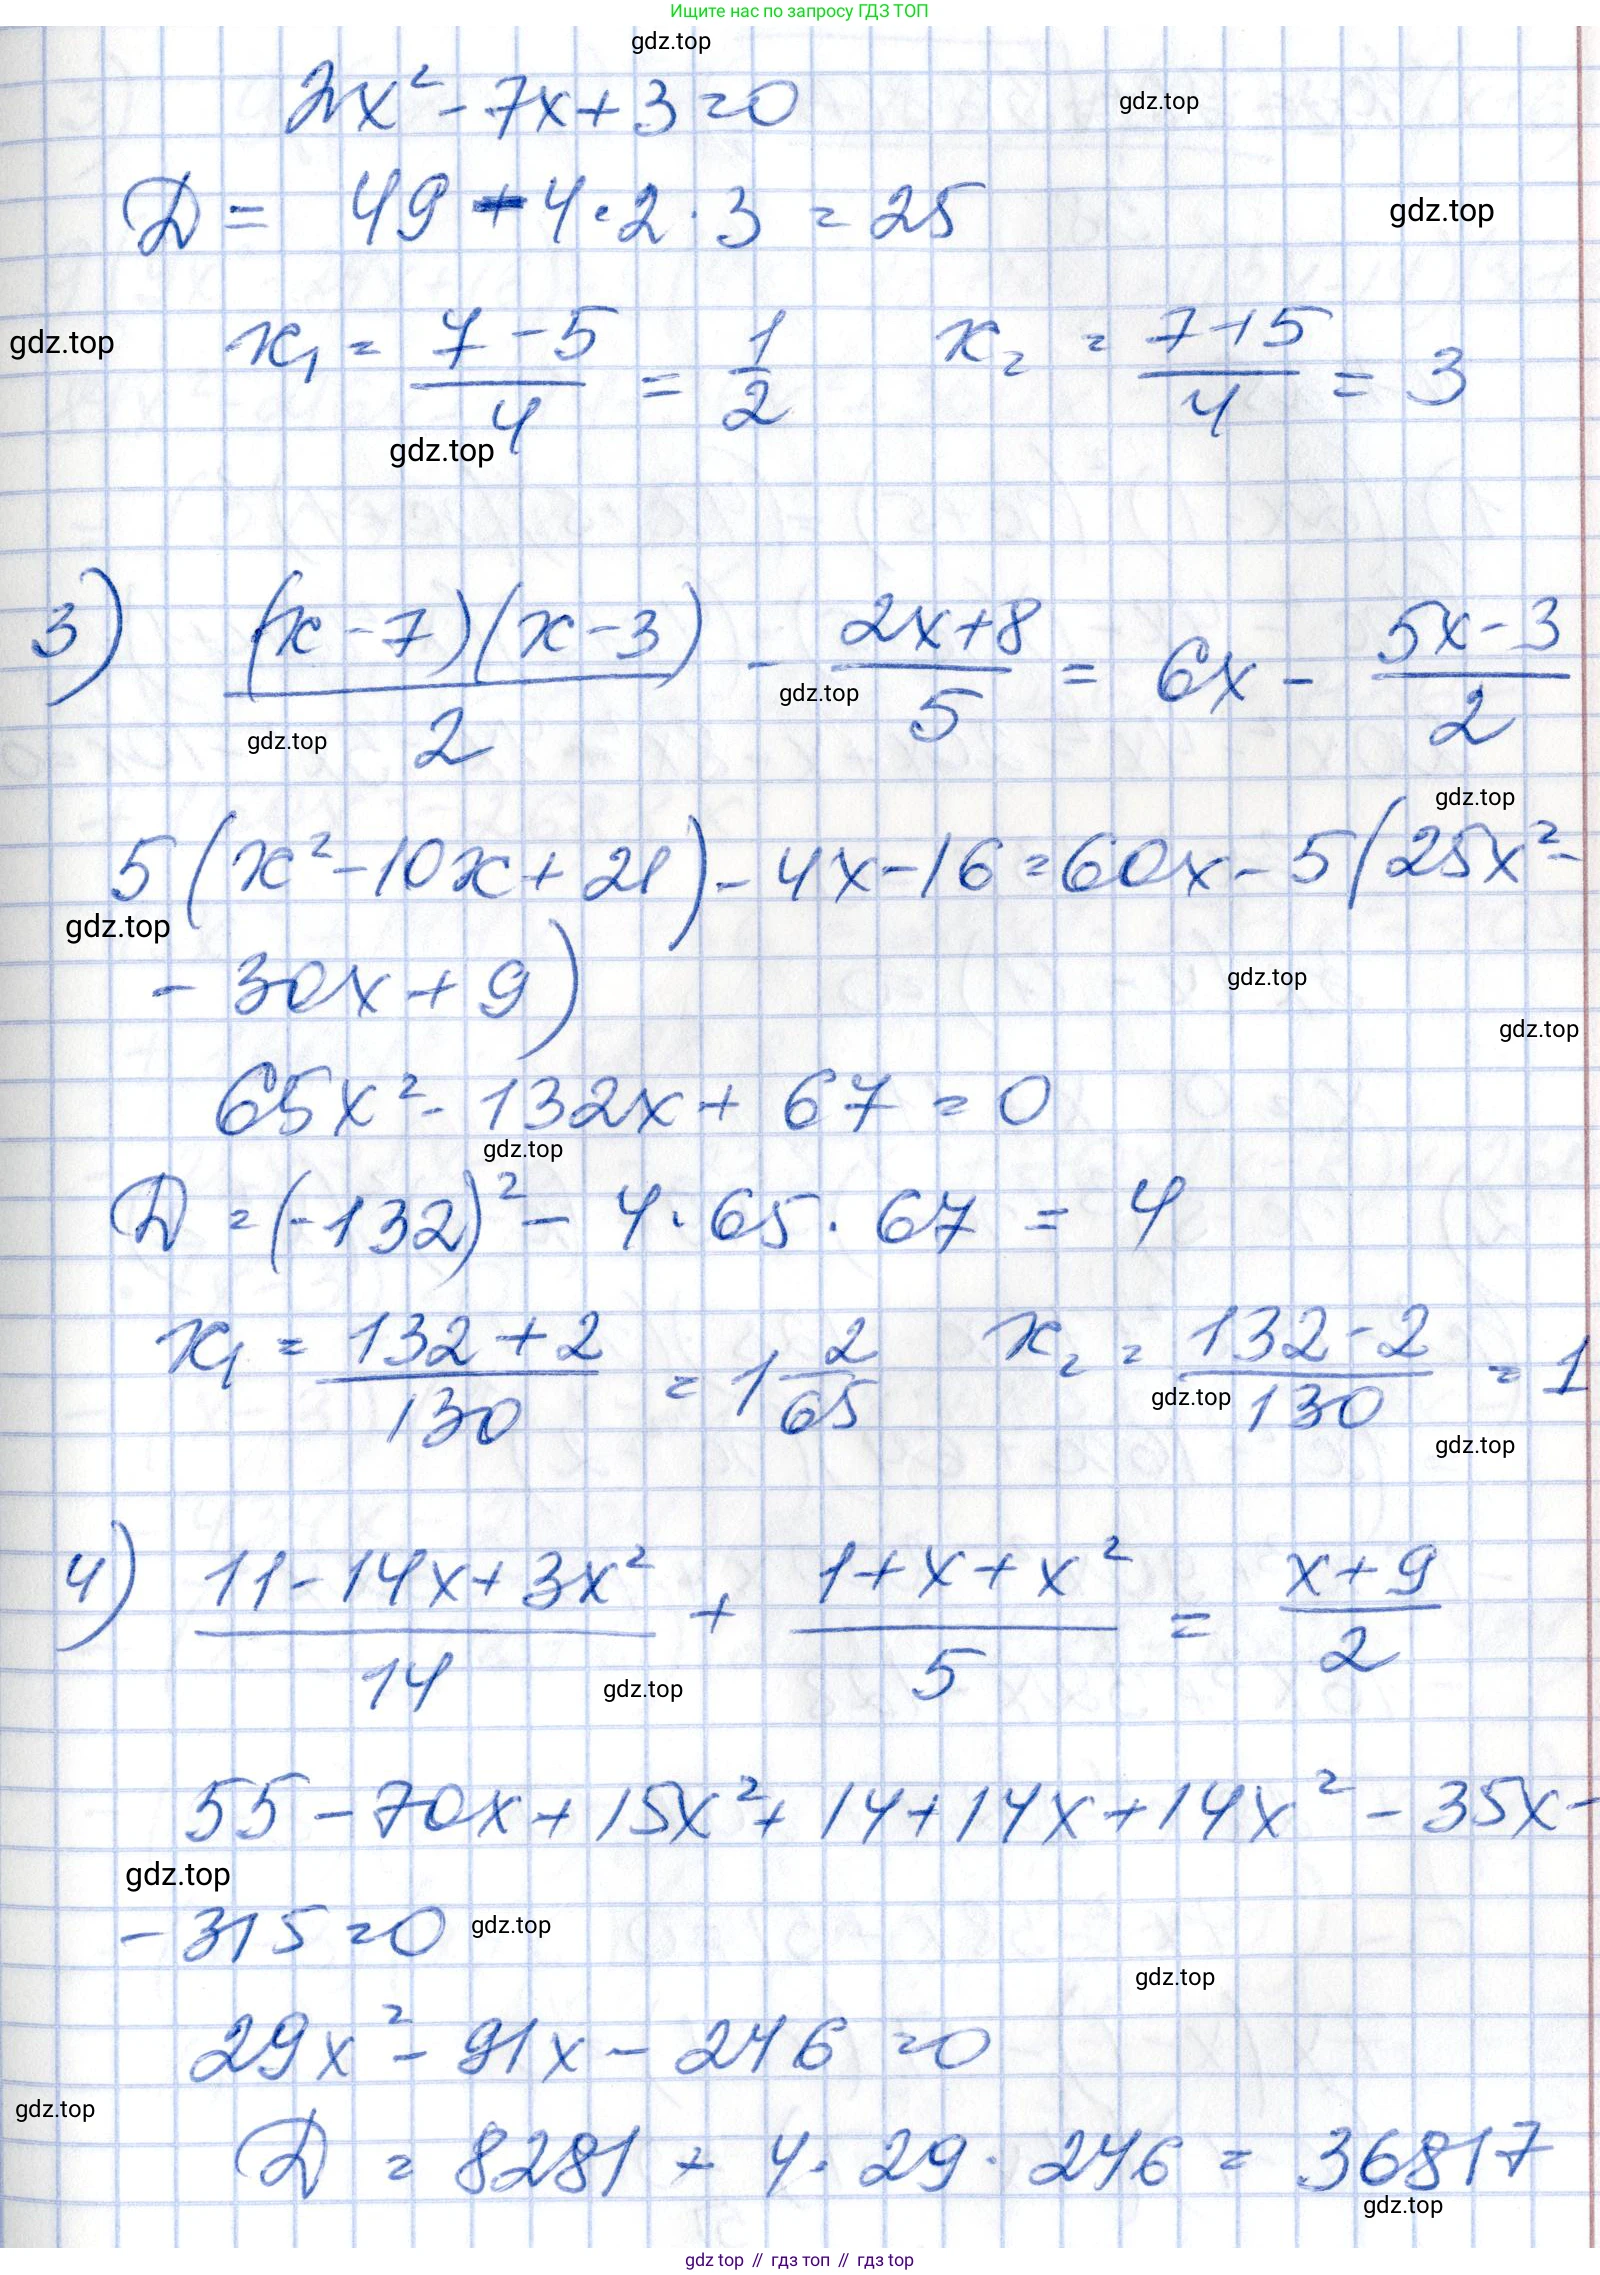 Ищите нас по запросу ГДЗ ТОП
gdz.top
2x² - 7x + 3 = 0
gdz.top
D = 49 - 4·2·3 = 25
gdz.top
gdz.top
x₁ = (7 - 5)/4 = 1/2    x₂ = (7+5)/4 = 3
gdz.top
3) (x - 7)(x - 3)/2 - (2x + 8)/5 = 6x - (5x - 3)/2
gdz.top
gdz.top
gdz.top
5(x² - 10x + 21) - 4x - 16 = 60x - 5(25x² -
gdz.top
- 30x + 9)
gdz.top
gdz.top
65x² - 132x + 67 = 0
gdz.top
D = (-132)² - 4·65·67 = 4
x₁ = (132 + 2)/130 = 1 2/65    x₂ = (132 - 2)/130 = 1
gdz.top
gdz.top
4) (11 - 14x + 3x²)/14 + (1 + x + x²)/5 = (x + 9)/2
gdz.top
55 - 70x + 15x² + 14 + 14x + 14x² - 35x -
gdz.top
- 315 = 0
gdz.top
gdz.top
29x² - 91x - 246 = 0
gdz.top
D = 8281 + 4·29·246 = 36817
gdz.top
gdz top // гдз топ // гдз top